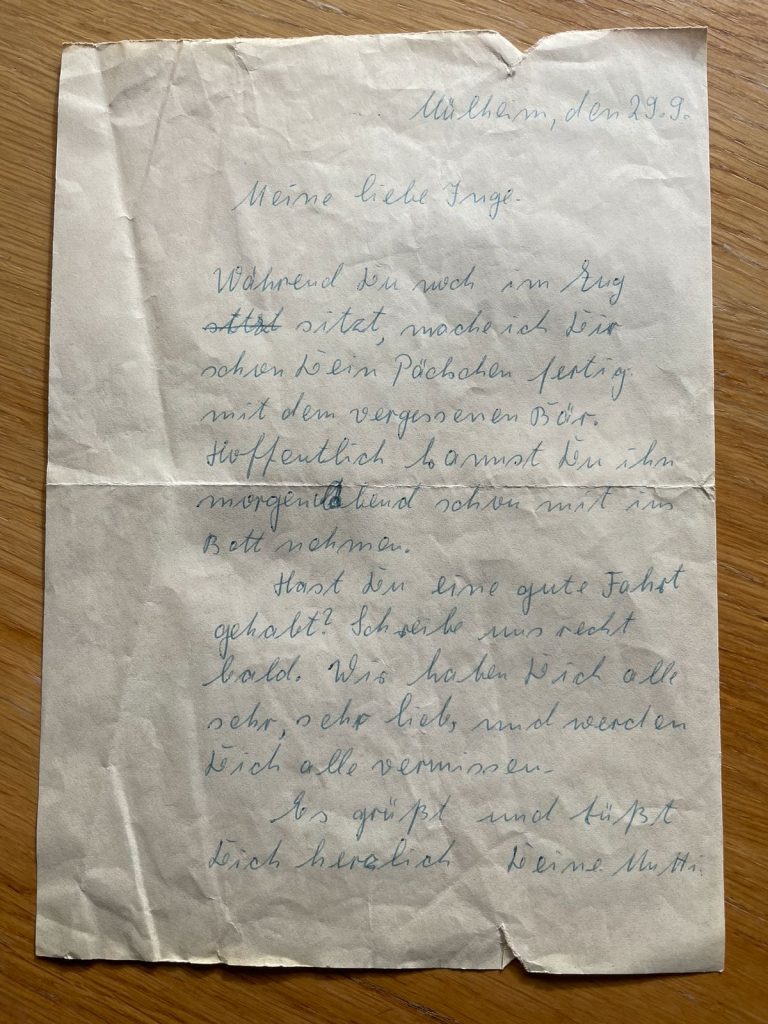 Mülheim, den 29.9.
Meine liebe Inge.
Während Du noch im Zug
sitzt, mache ich Dir
schon Dein Päckchen fertig
mit dem vergessenen Bär.
Hoffentlich kannst Du ihn
morgen Abend schon mit ins
Bett nehmen.
Hast Du eine gute Fahrt
gehabt? Schreibe uns recht
bald. Wir haben Dich alle
sehr, sehr lieb, und werden
Dich alle vermissen.
Es grüßt und küßt
Dich herzlich Deine Mutti.